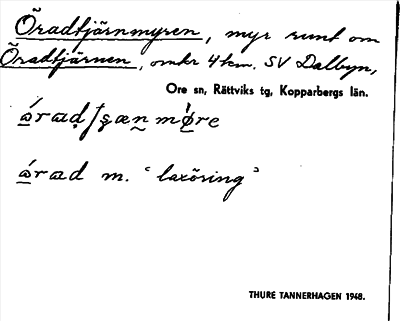 Öradtjärnmyren, myr runt om
Öradtjärnen, omkr 4 km. SV Dalbyn,
Ore sn, Rättviks tg, Kopparbergs län.
m. "laxöring"
THURE TANNERHAGEN 1948.